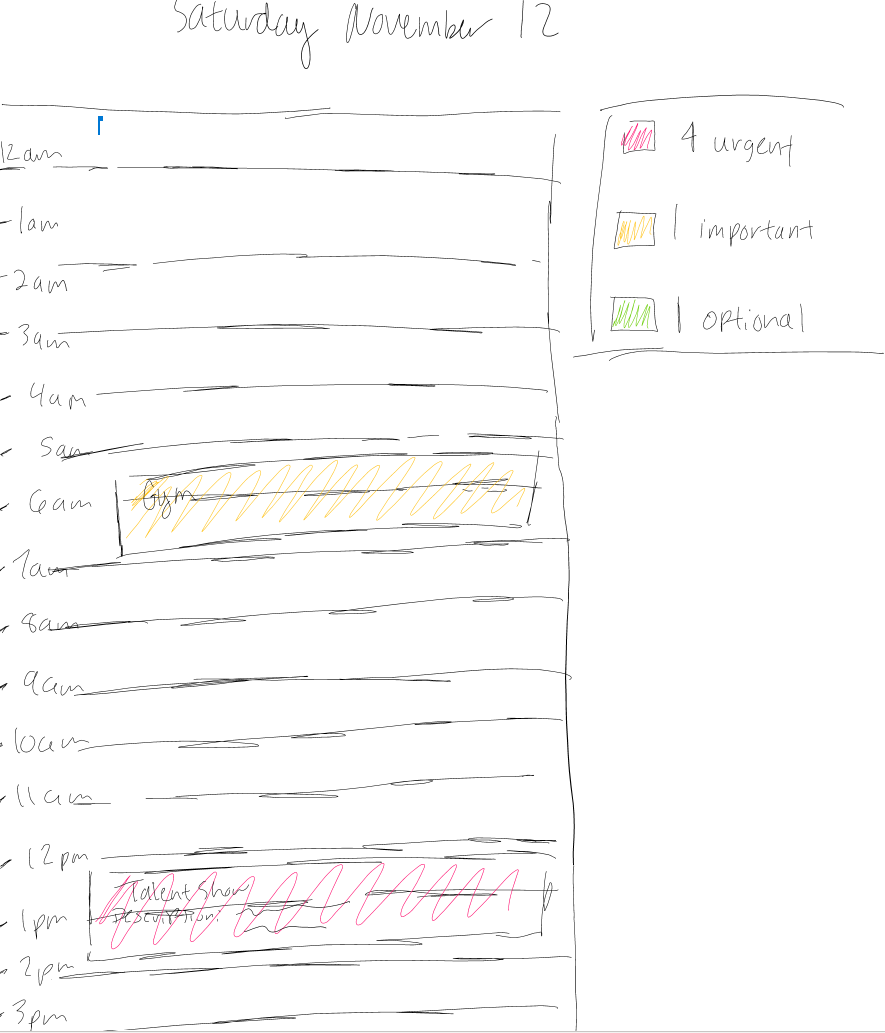 Saturday November 12
12am
1am
2am
3am
4am
5am
6am
Gym
7am
8am
9am
10am
11am
12pm
Talent Show
Description:
1pm
2pm
3pm
4 urgent
1 important
1 optional